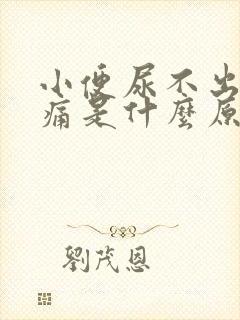 小便尿不出
痛是什麼原
劉茂恩